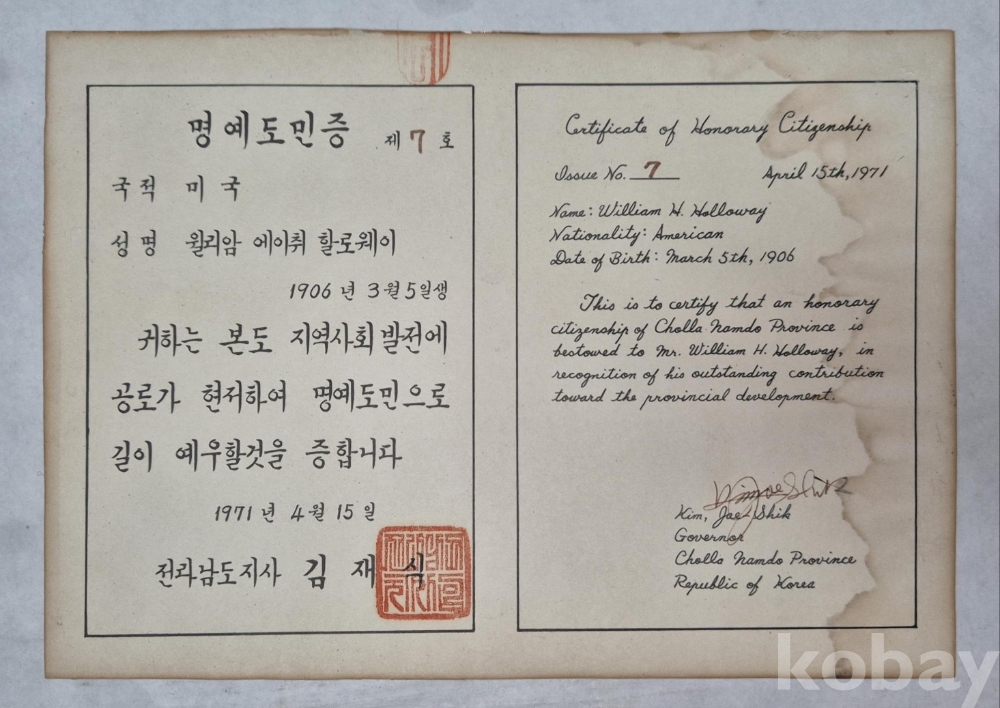 명예도민증 제 7 호
국적 미국
성명 윌리암 에이취 할로웨이
1906 년 3월 5일생
귀하는 본도 지역사회 발전에
공로가 현저하여 명예도민으로
길이 예우할것을 증합니다
1971 년 4 월 15 일
전라남도지사 김 재 식
Certificate of Honorary Citizenship
Issue No. 7 April 15th, 1971
Name: William H. Holloway
Nationality: American
Date of Birth: March 5th, 1906
This is to certify that an honorary
citizenship of Cholla Namdo Province is
bestowed to Mr. William H. Holloway, in
recognition of his outstanding contribution
toward the provincial development.
Kim, Jae-Shik
Governor
Cholla Namdo Province
Republic of Korea
kobay